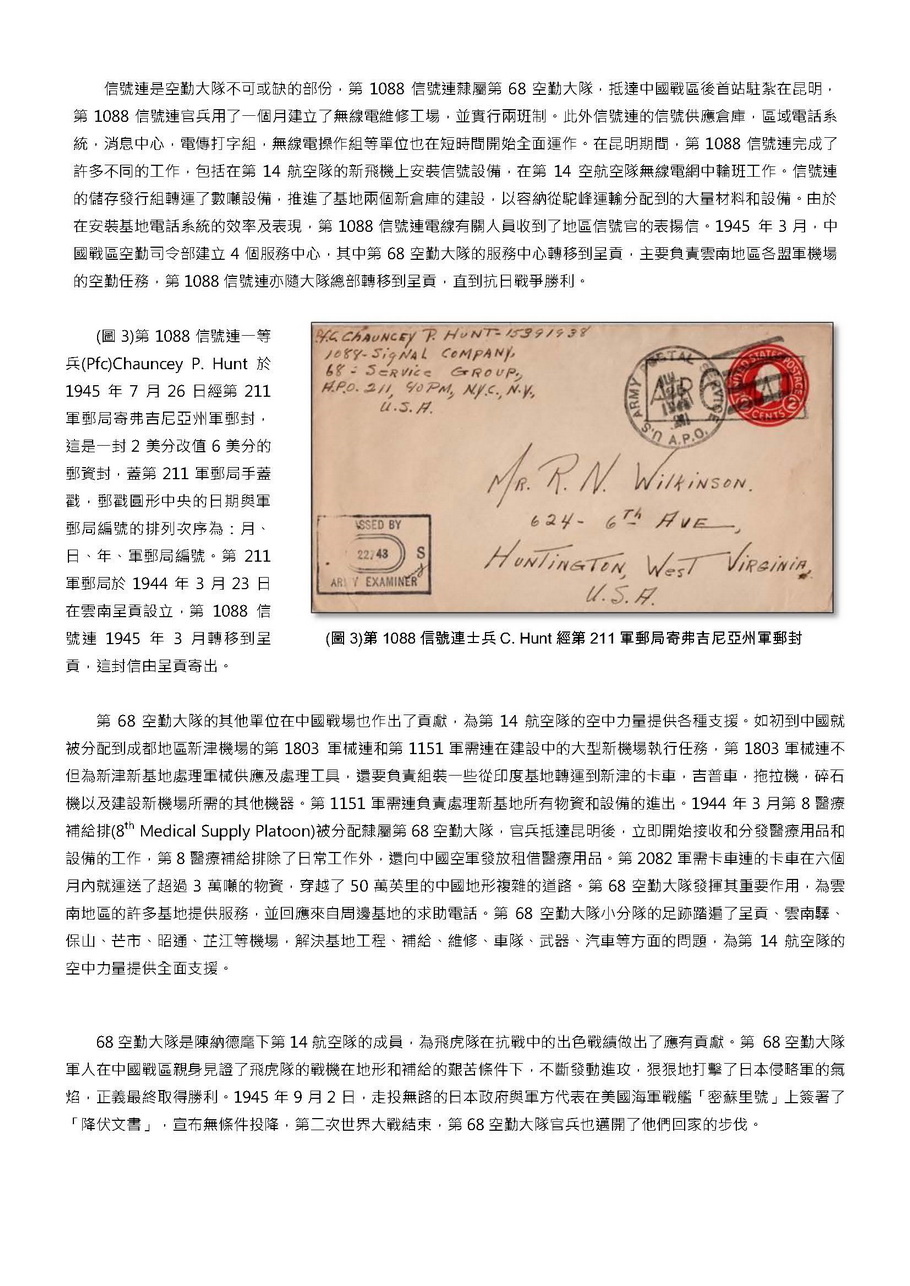 信號連是空勤大隊不可或缺的部份，第 1088 信號連隸屬第 68 空勤大隊，抵達中國戰區後首站駐紮在昆明，
第 1088 信號連官兵用了一個月建立了無線電維修工場，並實行兩班制。此外信號連的信號供應倉庫，區域電話系
統，消息中心，電傳打字組，無線電操作組等單位也在短時間開始全面運作。在昆明期間，第 1088 信號連完成了
許多不同的工作，包括在第 14 航空隊的新飛機上安裝信號設備，在第 14 空航空隊無線電網中輪班工作。信號連
的儲存發行組轉運了數噸設備，推進了基地兩個新倉庫的建設，以容納從駝峰運輸分配到的大量材料和設備。由於
在安裝基地電話系統的效率及表現，第 1088 信號連電線有關人員收到了地區信號官的表揚信。1945 年 3 月，中
國戰區空勤司令部建立 4 個服務中心，其中第 68 空勤大隊的服務中心轉移到呈貢，主要負責雲南地區各盟軍機場
的空勤任務，第 1088 信號連亦隨大隊總部轉移到呈貢，直到抗日戰爭勝利。
(圖 3)第 1088 信號連一等
兵(Pfc)Chauncey P. Hunt 於
1945 年 7 月 26 日經第 211
軍郵局寄弗吉尼亞州軍郵封，
這是一封 2 美分改值 6 美分的
郵資封，蓋第 211 軍郵局手蓋
戳，郵戳圓形中央的日期與軍
郵局編號的排列次序為：月、
日、年、軍郵局編號。第 211
軍郵局於 1944 年 3 月 23 日
在雲南呈貢設立，第 1088 信
號連 1945 年 3 月轉移到呈
貢，這封信由呈貢寄出。
Pfc Chauncey P. Hunt-15391938
1088-Signal Company,
68 = Service Group,
A.P.O. 211, % PM, N.Y.C., N.Y.,
U.S.A.
U.S. ARMY POSTAL SERVICE
A.P.O.
UNITED STATES POSTAGE
2 CENTS 2
Mr. R. N. Wilkinson.
624- 6th Ave,
Huntington, West Virginia,
U.S.A.
SSED BY
22743 S
ARMY EXAMINER
(圖 3)第 1088 信號連士兵 C. Hunt 經第 211 軍郵局寄弗吉尼亞州軍郵封
第 68 空勤大隊的其他單位在中國戰場也作出了貢獻，為第 14 航空隊的空中力量提供各種支援。如初到中國就
被分配到成都地區新津機場的第 1803 軍械連和第 1151 軍需連在建設中的大型新機場執行任務，第 1803 軍械連不
但為新津新基地處理軍械供應及處理工具，還要負責組裝一些從印度基地轉運到新津的卡車，吉普車，拖拉機，碎石
機以及建設新機場所需的其他機器。第 1151 軍需連負責處理新基地所有物資和設備的進出。1944 年 3 月第 8 醫療
補給排(8th Medical Supply Platoon)被分配隸屬第 68 空勤大隊，官兵抵達昆明後，立即開始接收和分發醫療用品和
設備的工作，第 8 醫療補給排除了日常工作外，還向中國空軍發放租借醫療用品。第 2082 軍需卡車連的卡車在六個
月內就運送了超過 3 萬噸的物資，穿越了 50 萬英里的中國地形複雜的道路。第 68 空勤大隊發揮其重要作用，為雲
南地區的許多基地提供服務，並回應來自周邊基地的求助電話。第 68 空勤大隊小分隊的足跡踏遍了呈貢、雲南驛、
保山、芒市、昭通、芷江等機場，解決基地工程、補給、維修、車隊、武器、汽車等方面的問題，為第 14 航空隊的
空中力量提供全面支援。
68 空勤大隊是陳納德麾下第 14 航空隊的成員，為飛虎隊在抗戰中的出色戰績做出了應有貢獻。第 68 空勤大隊
軍人在中國戰區親身見證了飛虎隊的戰機在地形和補給的艱苦條件下，不斷發動進攻，狠狠地打擊了日本侵略軍的氣
焰，正義最終取得勝利。1945 年 9 月 2 日，走投無路的日本政府與軍方代表在美國海軍戰艦「密蘇里號」上簽署了
「降伏文書」，宣布無條件投降，第二次世界大戰結束，第 68 空勤大隊官兵也邁開了他們回家的步伐。